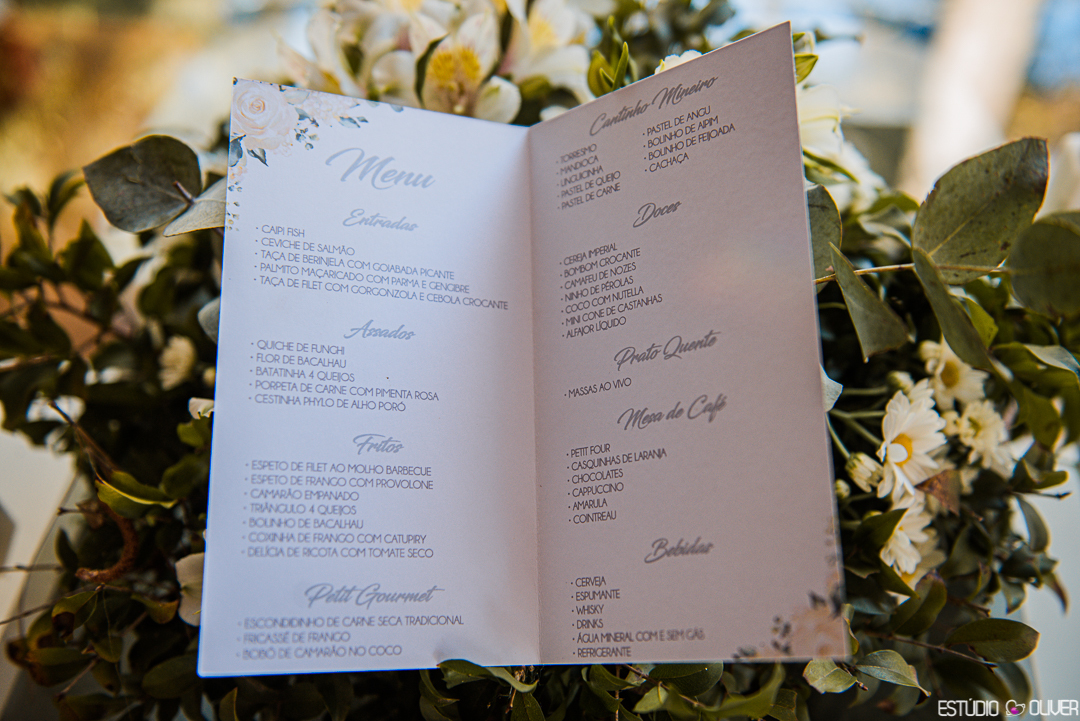 Menu
Entradas
• CAIPI FISH
• CEVICHE DE SALMÃO
• TAÇA DE BERINELA COM GOIABADA PICANTE
• PALMITO MAÇARICADO COM PARMA E GENGIBRE
• TAÇA DE FILET COM GORGONZOLA E CEBOLA CROCANTE
Assados
• QUICHE DE FUNGHI
• FLOR DE BACALHAU
• BATATINHA 4 QUEIJOS
• PORPETA DE CARNE COM PIMENTA ROSA
• CESTINHA PHYLO DE ALHO PORÓ
Fritos
• ESPETO DE FILET AO MOLHO BARBECUE
• ESPETO DE FRANGO COM PROVOLONE
• CAMARÃO EMPANADO
• TRIÂNGULO 4 QUEIJOS
• BOLINHO DE BACALHAU
• COXINHA DE FRANGO COM CATUPIRY
• DELÍCIA DE RICOTA COM TOMATE SECO
Petit Gourmet
• ESCONDIDINHO DE CARNE SECA TRADICIONAL
• FRICASSÊ DE FRANGO
• BOBÓ DE CAMARÃO NO COCO
Cantinho Mineiro
• TORRESMO
• MANDIOCA
• LINGUICINHA
• PASTEL DE QUEIJO
• PASTEL DE CARNE
• PASTEL DE ANGU
• BOLINHO DE AIPIM
• BOLINHO DE FEIJOADA
• CACHAÇA
Doces
• CEREJA IMPERIAL
• BOMBOM CROCANTE
• CAMAFEU DE NOZES
• NINHO DE PÉROLAS
• COCO COM NUTELLA
• MINI CONE DE CASTANHAS
• ALFAJOR LÍQUIDO
Prato Quente
• MASSAS AO VIVO
Mesa de Café
• PETIT FOUR
• CASQUINHAS DE LARANJA
• CHOCOLATES
• CAPPUCCINO
• AMARULA
• COINTREAU
Bebidas
• CERVEJA
• ESPUMANTE
• WHISKY
• DRINKS
• ÁGUA MINERAL COM E SEM GÁS
• REFRIGERANTE
ESTÚDIO OLIVER